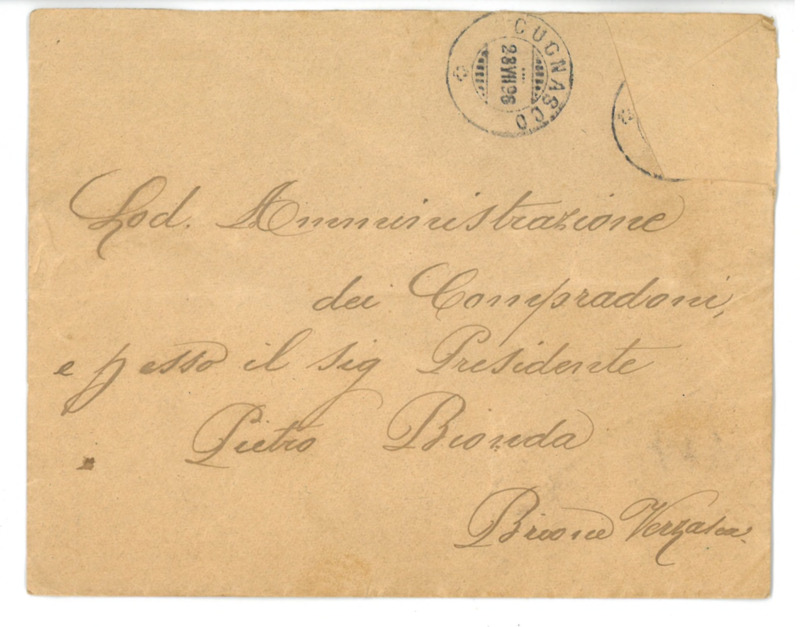 CUGNASCO
28 VII 96
Lod. Amministrazione
dei Compradoni,
e p esso il sig Presidente
Pietro Bionda
Brione Verzasca.